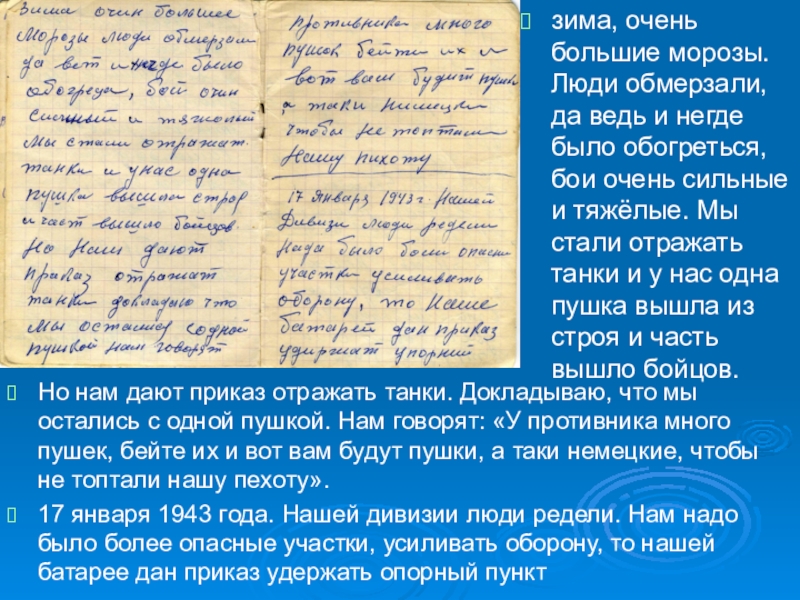 Зима очин большее
морозы люди обмерзали
да вет и негде было
обогреца, бой очин
силнный и тяжолый
Мы стали отражат.
танки и унас одна
пушка вышла строе
ичаст вышло бойцов.
Но Нам дают
приказ отражат
танки докладыю что
мы осталис содной
пушкой нам говорят
противника много
пушок бейти их и
вот вам будит пушки
а таки нимецки
чтобы не топтали
Нашу пихоту
17 Января 1943 г. Нашей
Дивизи люди редели
Нада было боли опасни
участки усиливать
оборону, то Наше
батарей дан приказ
удиржат упорний
зима, очень
большие морозы.
Люди обмерзали,
да ведь и негде
было обогреться,
бои очень сильные
и тяжёлые. Мы
стали отражать
танки и у нас одна
пушка вышла из
строя и часть
вышло бойцов.
Но нам дают приказ отражать танки. Докладываю, что мы
остались с одной пушкой. Нам говорят: «У противника много
пушек, бейте их и вот вам будут пушки, а таки немецкие, чтобы
не топтали нашу пехоту».
17 января 1943 года. Нашей дивизии люди редели. Нам надо
было более опасные участки, усиливать оборону, то нашей
батарее дан приказ удержать опорный пункт